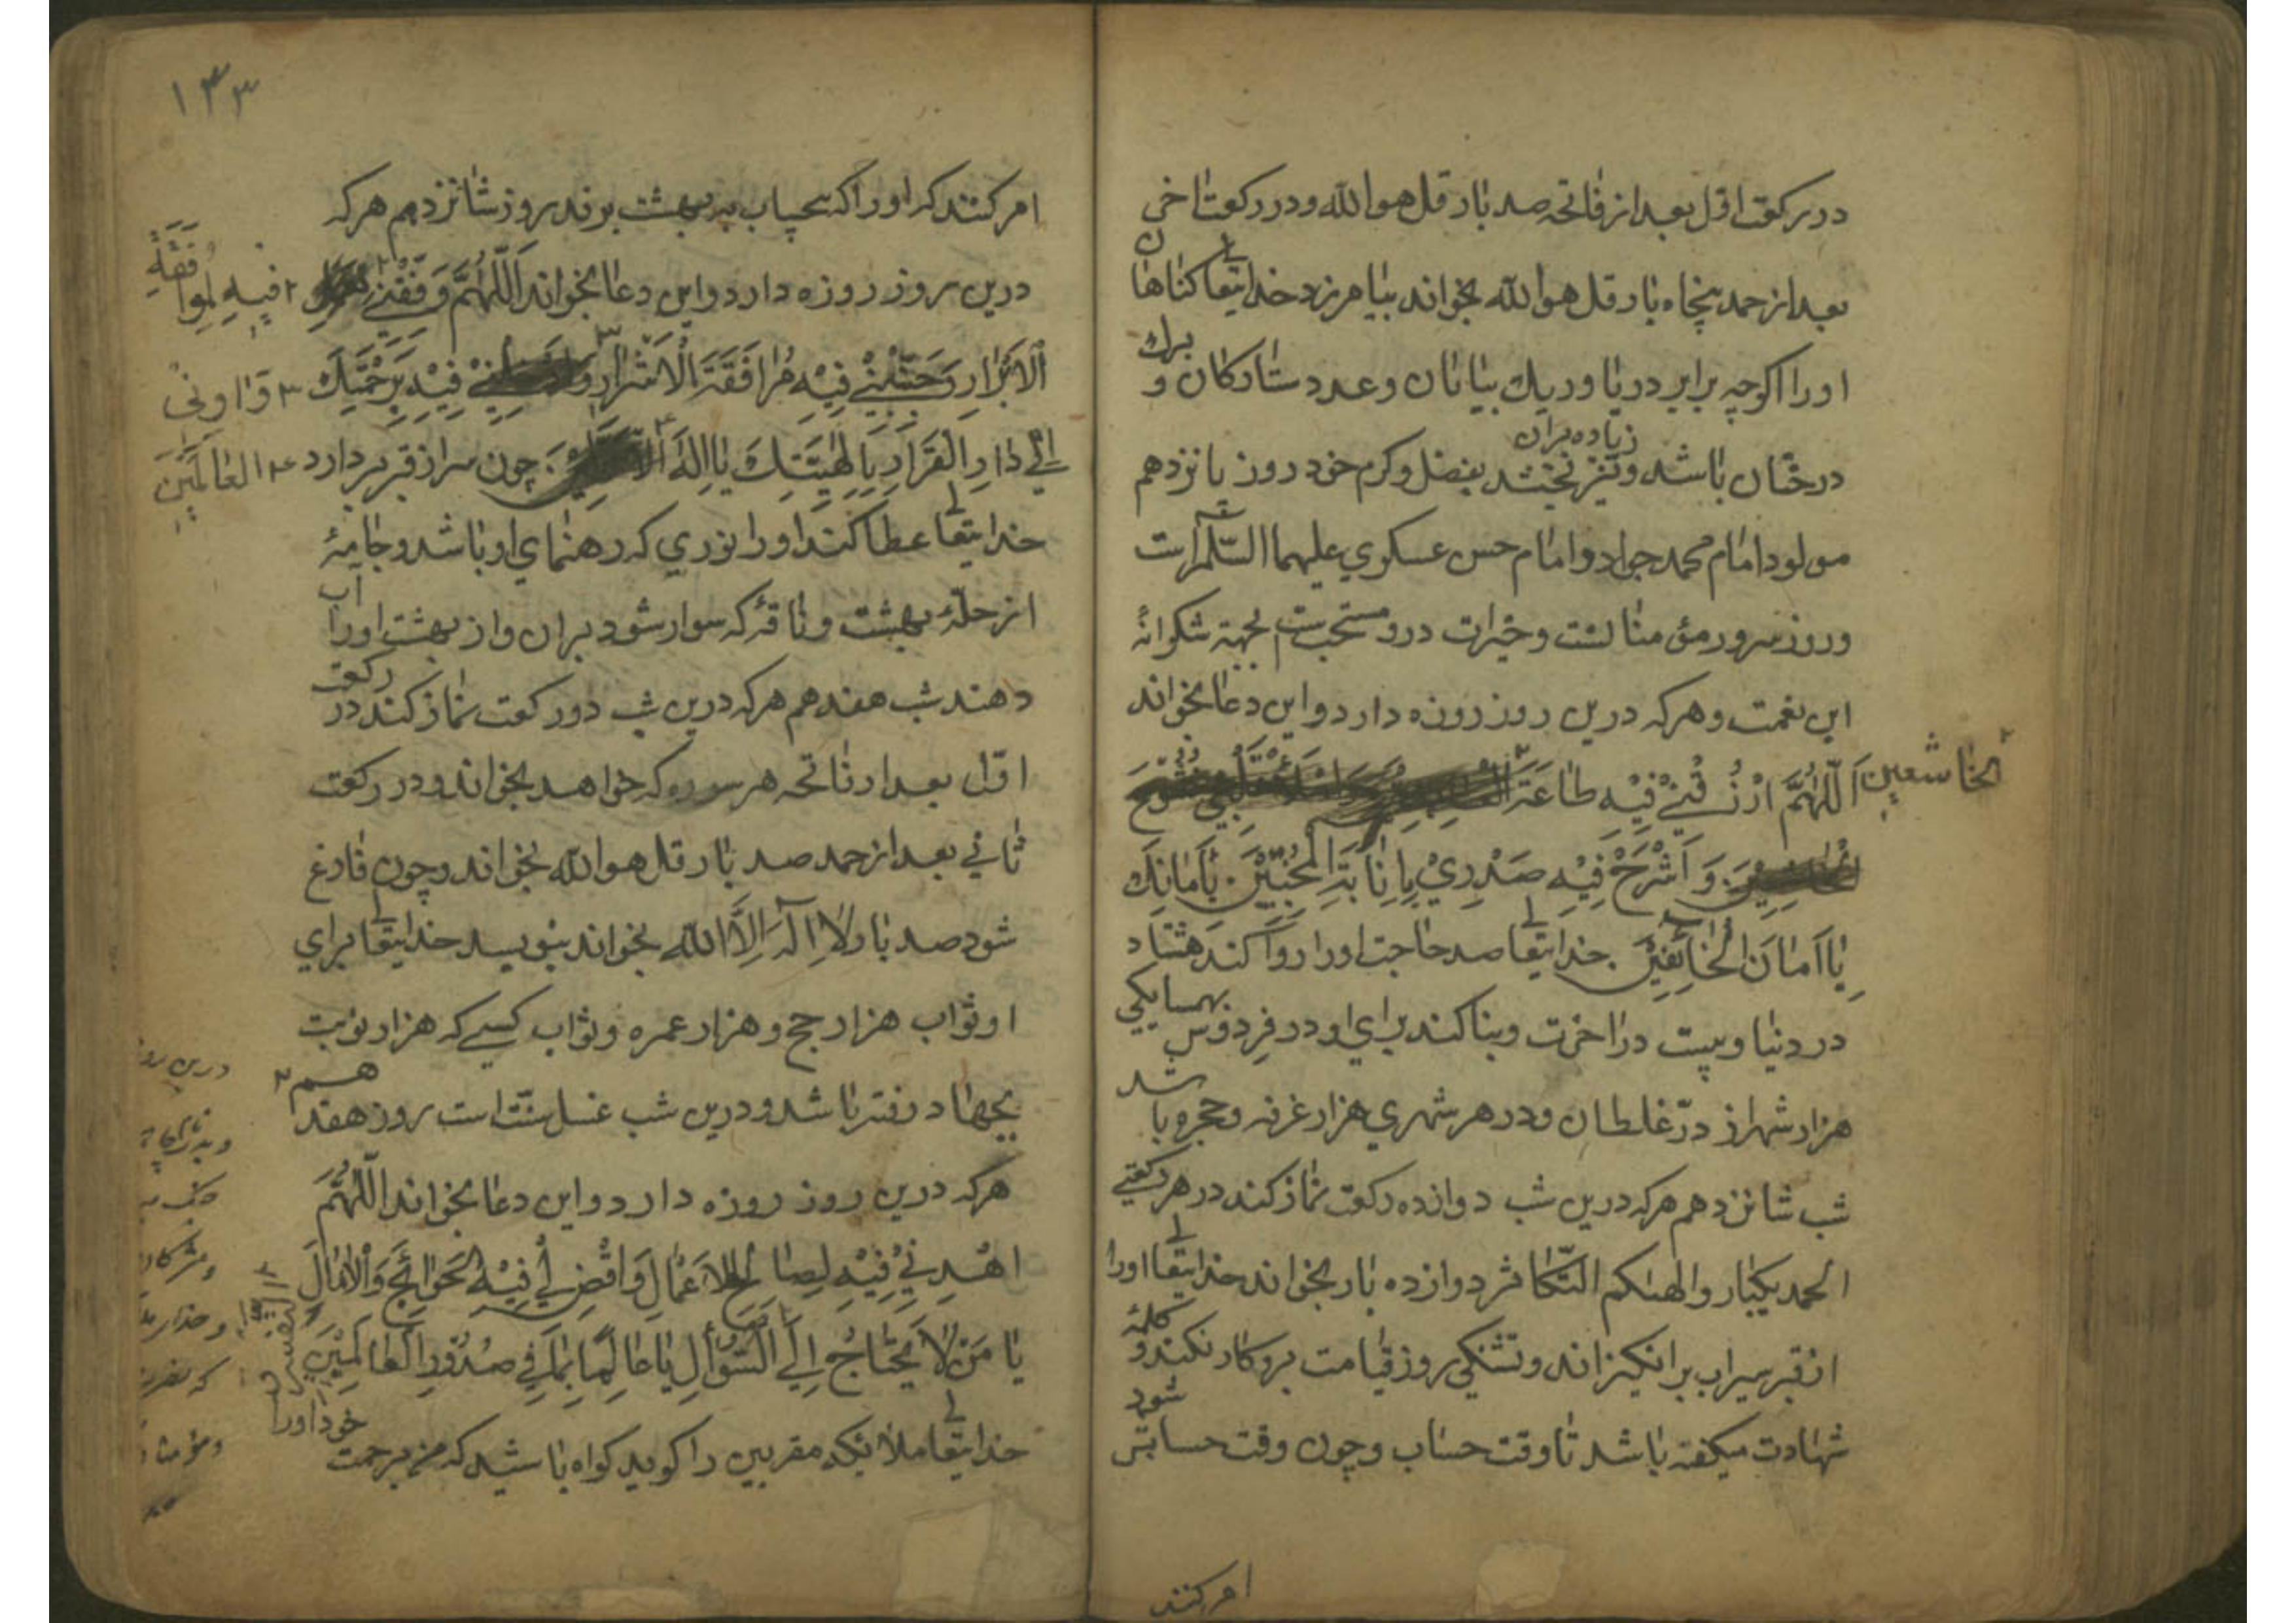 در رکعت اوّل بعد از فاتحه صد بار قل هو الله و در رکعت اخی
بعد از حمد پنجاه بار قل هو الله بخواند بیامرزد خدایتعالی کناهان
او را اکرچه برابر دریا و ریك بیابان و عدد ستارکان و برك
درختان باشد و نیز بخشد زیاده بران بفضل و کرم خود روز پانزدهم
مولود امام محمد جواد و امام حسن عسکری علیهما السّلم است
و روز سرور مؤمنانست و خیرات درو مستحبست بجهة شکرانهٔ
این نعمت و هرکه درین روز روزه دارد و این دعا بخواند
اَللّٰهُمَّ ارْزُقْنِي فِيْهِ طَاعَةَ
الخاشعین
وَ اَشْرَحْ فِيْهِ صَدْرِيْ بِاِنَابَةِ الْمُخْبِتِيْنَ بِاَمَانِكَ
يَا اَمَانَ الْخَائِفِيْنَ خدایتعالی صد حاجت او را روا کند هشتاد
در دنیا و بیست در آخرت و بنا کند برای او در فردوس بهمسایکی
هزار شهر از درّ غلطان و در هر شهری هزار غرفه و حجره باشد
شب شانزدهم هرکه درین شب دوازده رکعت نماز کند در هر رکعتی
الحمد یکبار و الهٰیکم التّکاثر دوازده بار بخواند خدایتعالی او را
از قبر سیراب برانکیزاند و تشنکی روز قیامت برو کار نکند و کلمهٔ
شهادت میکفته باشد تا وقت حساب و چون وقت حسابش شود
امر کنند
۱۳۳
امر کنند که او را که بحساب به بهشت برند روز شانزدهم هرکه
درین روز روزه دارد و این دعا بخواند اَللّٰهُمَّ وَفِّقْنِيْ
فیه لموافَقَةِ
الْاَبْرَارِ وَ جَنِّبْنِيْ فِيْهِ مُرَافَقَةَ الْاَشْرَارِ فِيْهِ بِرَحْمَتِكَ
وَاوِنی
اِلٰي دَارِ الْقَرَارِ بِاِلٰهِيَّتِكَ يَا اِلٰهَ چون سر از قبر بردارد
العَالَمین
خدایتعالی عطا کند او را نوری که رهنمای او باشد و جامهٔ
از حلّهٔ بهشت و ناقهٔ که سوار شود بران و از بهشت او را آب
دهند شب هفدهم هرکه درین شب دو رکعت نماز کند در رکعت
اوّل بعد از فاتحه هر سوره که خواهد بخواند و در رکعت
ثانی بعد از حمد صد بار قل هو الله بخواند و چون فارغ
شود صد بار لَا اِلٰهَ اِلَّا الله بخواند بنویسد خدایتعالی برای
او ثواب هزار حج و هزار عمره و ثواب کسی که هزار نوبت
بجهاد رفته باشد و درین شب غسل سنّت است روز هفدهم
هرکه درین روز روزه دارد و این دعا بخواند اَللّٰهُمَّ
اهْدِنِيْ فِيْهِ لِصَالِحِ الْاَعْمَالِ وَ اقْضِ لِيْ فِيْهِ الْحَوَائِجَ وَالْاٰمَالَ
يَا مَنْ لَا يَحْتَاجُ اِلَي السُّؤَالِ يَا عَالِمًا بِمَا فِيْ صُدُوْرِ الْعَالَمِيْنَ
خدایتعالی ملائیکه مقربین را کوید کواه باشید که من برحمت
خود او را
درین رو